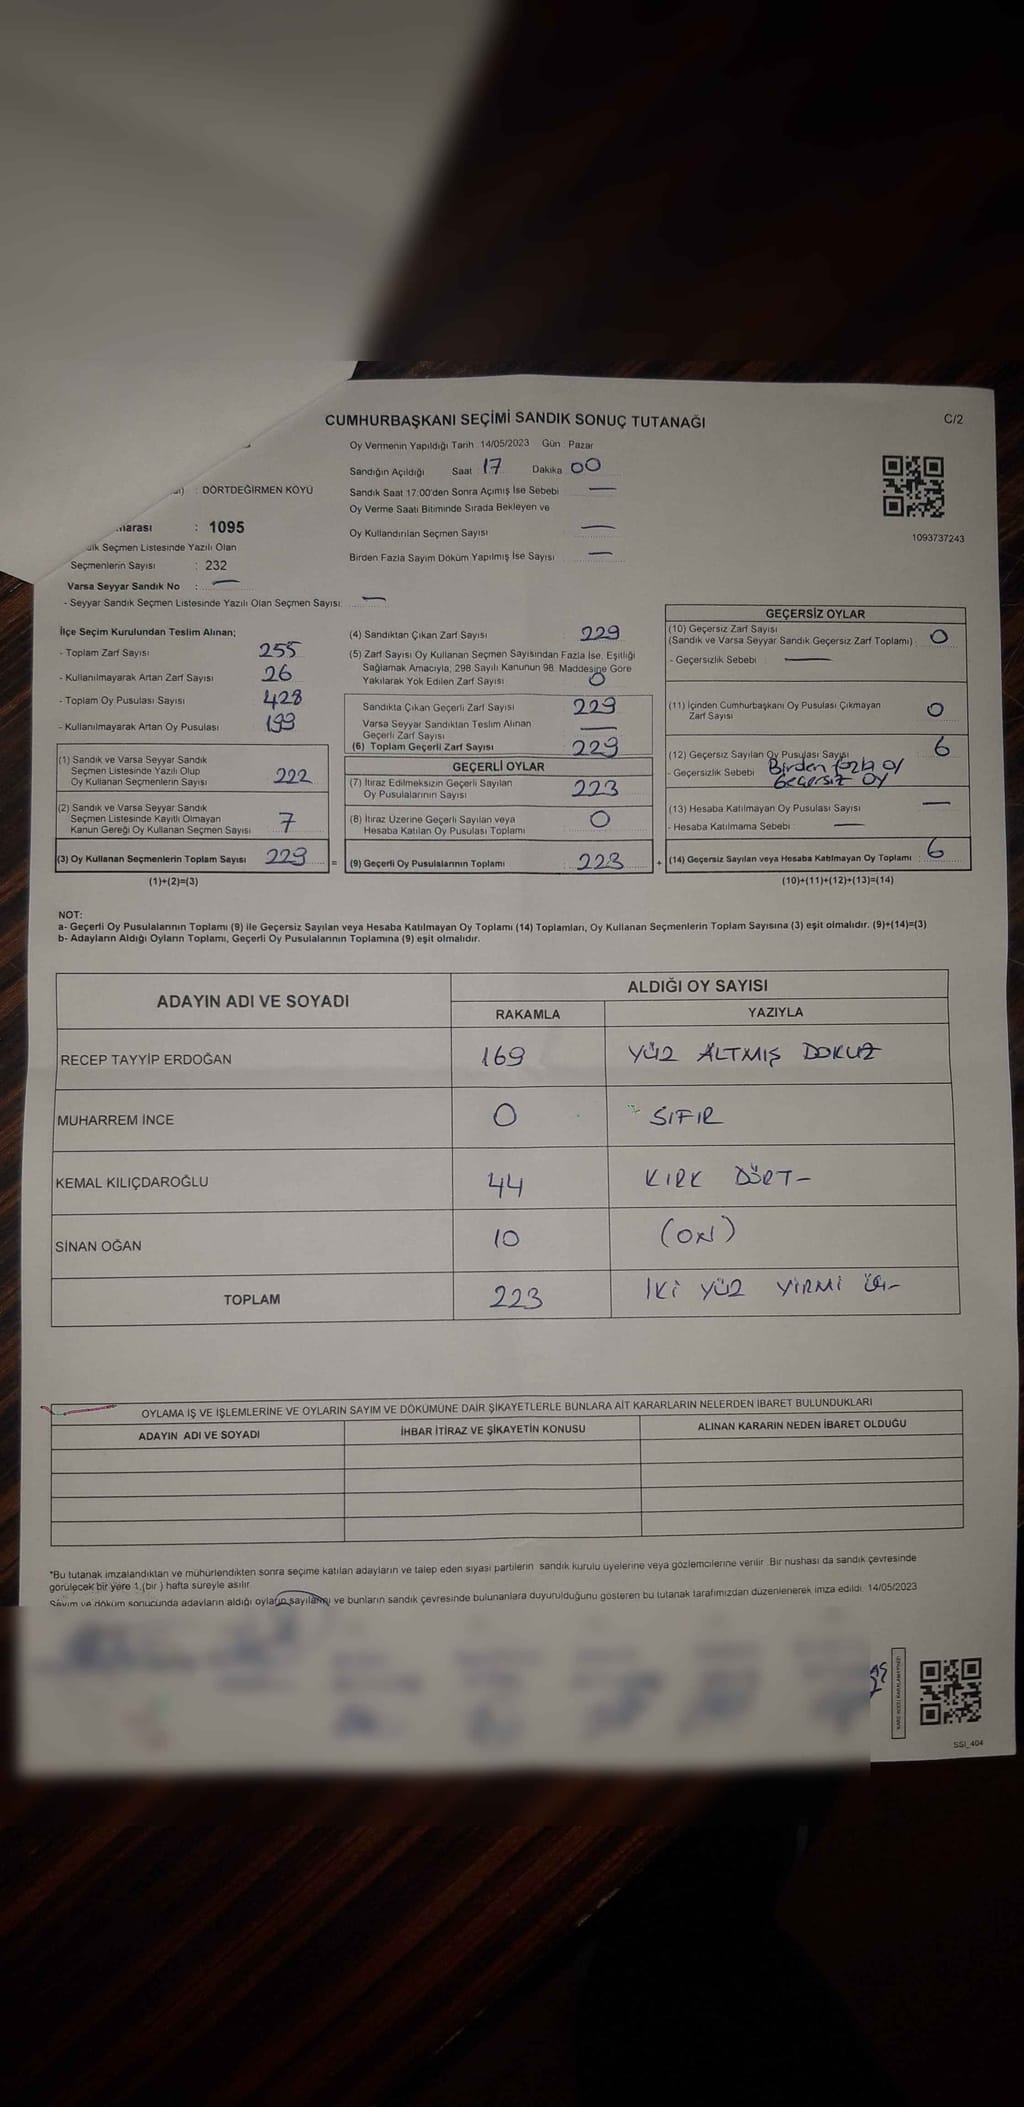 CUMHURBAŞKANI SEÇİMİ SANDIK SONUÇ TUTANAĞI
C/2
Oy Vermenin Yapıldığı Tarih 14/05/2023 Gün : Pazar
Sandığın Açıldığı Saat 17 Dakika 00
: DÖRTDEĞİRMEN KÖYÜ
Sandık Saat 17:00'den Sonra Açımış İse Sebebi —
Oy Verme Saati Bitiminde Sırada Bekleyen ve
Oy Kullandırılan Seçmen Sayısı —
Birden Fazla Sayım Döküm Yapılmış İse Sayısı —
1093737243
: 1095
Seçmen Listesinde Yazılı Olan
Seçmenlerin Sayısı : 232
Varsa Seyyar Sandık No : —
- Seyyar Sandık Seçmen Listesinde Yazılı Olan Seçmen Sayısı: —
İlçe Seçim Kurulundan Teslim Alınan;
- Toplam Zarf Sayısı 255
- Kullanılmayarak Artan Zarf Sayısı 26
- Toplam Oy Pusulası Sayısı 428
- Kullanılmayarak Artan Oy Pusulası 199
(1) Sandık ve Varsa Seyyar Sandık
Seçmen Listesinde Yazılı Olup
Oy Kullanan Seçmenlerin Sayısı 222
(2) Sandık ve Varsa Seyyar Sandık
Seçmen Listesinde Kayıtlı Olmayan
Kanun Gereği Oy Kullanan Seçmen Sayısı 7
(3) Oy Kullanan Seçmenlerin Toplam Sayısı 229 =
(1)+(2)=(3)
(4) Sandıktan Çıkan Zarf Sayısı 229
(5) Zarf Sayısı Oy Kullanan Seçmen Sayısından Fazla İse, Eşitliği
Sağlamak Amacıyla, 298 Sayılı Kanunun 98. Maddesine Göre
Yakılarak Yok Edilen Zarf Sayısı 0
Sandıkta Çıkan Geçerli Zarf Sayısı 229
Varsa Seyyar Sandıktan Teslim Alınan
Geçerli Zarf Sayısı —
(6) Toplam Geçerli Zarf Sayısı 229
GEÇERLİ OYLAR
(7) İtiraz Edilmeksizin Geçerli Sayılan
Oy Pusulalarının Sayısı 223
(8) İtiraz Üzerine Geçerli Sayılan veya
Hesaba Katılan Oy Pusulası Toplamı 0
(9) Geçerli Oy Pusulalarının Toplamı : 223 +
GEÇERSİZ OYLAR
(10) Geçersiz Zarf Sayısı
(Sandık ve Varsa Seyyar Sandık Geçersiz Zarf Toplamı) : 0
- Geçersizlik Sebebi : —
(11) İçinden Cumhurbaşkanı Oy Pusulası Çıkmayan
Zarf Sayısı 0
(12) Geçersiz Sayılan Oy Pusulası Sayısı 6
- Geçersizlik Sebebi Birden fazla oy
Geçersiz Oy
(13) Hesaba Katılmayan Oy Pusulası Sayısı —
- Hesaba Katılmama Sebebi : —
(14) Geçersiz Sayılan veya Hesaba Katılmayan Oy Toplamı : 6
(10)+(11)+(12)+(13)=(14)
NOT:
a- Geçerli Oy Pusulalarının Toplamı (9) ile Geçersiz Sayılan veya Hesaba Katılmayan Oy Toplamı (14) Toplamları, Oy Kullanan Seçmenlerin Toplam Sayısına (3) eşit olmalıdır. (9)+(14)=(3)
b- Adayların Aldığı Oyların Toplamı, Geçerli Oy Pusulalarının Toplamına (9) eşit olmalıdır.
ADAYIN ADI VE SOYADI ALDIĞI OY SAYISI
RAKAMLA YAZIYLA
RECEP TAYYİP ERDOĞAN 169 YÜZ ALTMIŞ DOKUZ
MUHARREM İNCE 0 SIFIR
KEMAL KILIÇDAROĞLU 44 KIRK DÖRT-
SİNAN OĞAN 10 (ON)
TOPLAM 223 İKİ YÜZ YİRMİ ÜÇ-
OYLAMA İŞ VE İŞLEMLERİNE VE OYLARIN SAYIM VE DÖKÜMÜNE DAİR ŞİKAYETLERLE BUNLARA AİT KARARLARIN NELERDEN İBARET BULUNDUKLARI
ADAYIN ADI VE SOYADI İHBAR İTİRAZ VE ŞİKAYETİN KONUSU ALINAN KARARIN NEDEN İBARET OLDUĞU
*Bu tutanak imzalandıktan ve mühürlendikten sonra seçime katılan adayların ve talep eden siyasi partilerin sandık kurulu üyelerine veya gözlemcilerine verilir. Bir nüshası da sandık çevresinde
görülecek bir yere 1 (bir ) hafta süreyle asılır.
Sayım ve döküm sonucunda adayların aldığı oyların sayılarını ve bunların sandık çevresinde bulunanlara duyurulduğunu gösteren bu tutanak tarafımızdan düzenlenerek imza edildi. 14/05/2023
SSI_404